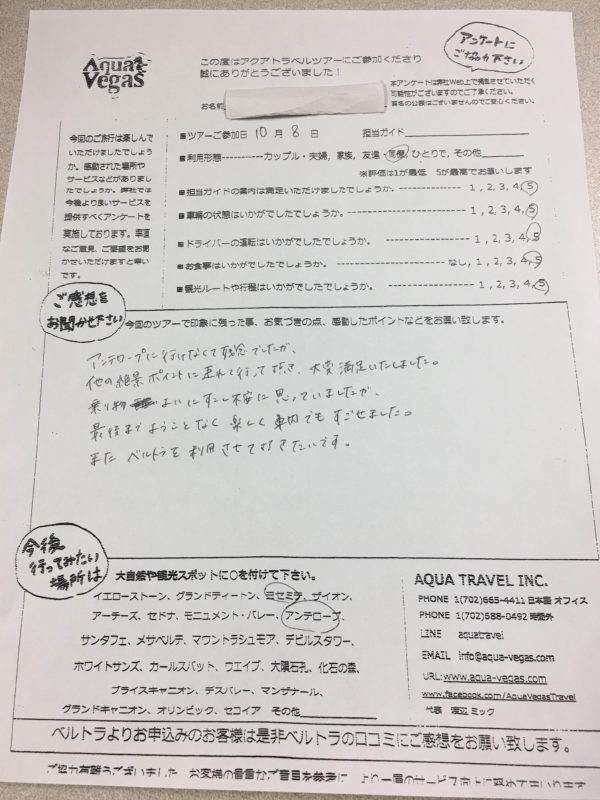 Aqua
Vegas
この度はアクアトラベルツアーにご参加くださり
誠にありがとうございました！
アンケートに
ご協力下さい
本アンケートは弊社Web上で掲載させていただく
可能性がございますのでご了承ください。
実名の公表はございませんのでご安心ください。
お名前
今回のご旅行は楽しんで
いただけましたでしょう
か。感動された場所や
サービスなどがありまし
たでしょうか。弊社では
今後より良いサービスを
提供すべくアンケートを
実施しております。率直
なご意見、ご要望をお聞
かせいただけますと幸い
です。
■ツアーご参加日 10 月 8 日 担当ガイド
■利用形態-----------カップル・夫婦, 家族, 友達・同僚, ひとりで, その他
※評価は1が最低 5が最高でお願いします
■担当ガイドの案内は満足いただけましたでしょうか。 1, 2, 3, 4, 5
■車輌の状態はいかがでしたでしょうか。 1, 2, 3, 4, 5
■ドライバーの運転はいかがでしたでしょうか。 1, 2, 3, 4, 5
■お食事はいかがでしたでしょうか。 なし, 1, 2, 3, 4, 5
■観光ルートや行程はいかがでしたでしょうか。 1, 2, 3, 4, 5
ご感想を
お聞かせ下さい
今回のツアーで印象に残った事、お気づきの点、感動したポイントなどをお願い致します。
アンテロープに行けなくて残念でしたが、
他の絶景ポイントに連れて行って頂き、大変満足いたしました。
乗り物よいにすこし不安に思っていましたが、
最後までようことなく楽しく車内でもすごせました。
また ベルトラを利用させて頂きたいです。
今後
行ってみたい
場所は
大自然や観光スポットに○を付けて下さい。
イエローストーン、グランドティートン、ヨセミテ、ザイオン、
アーチーズ、セドナ、モニュメント・バレー、アンテロープ、
サンタフェ、メサベルデ、マウントラシュモア、デビルスタワー、
ホワイトサンズ、カールスバット、ウエイブ、大隕石孔、化石の森、
ブライスキャニオン、デスバレー、マンザナール、
グランドキャニオン、オリンピック、セコイア その他
AQUA TRAVEL INC.
PHONE 1(702)665-4411 日本語 オフィス
PHONE 1(702)688-0492 時間外
LINE aquatravel
EMAIL info@aqua-vegas.com
URL: www.aqua-vegas.com
www.facebook.com/AquaVegasTravel
代表 渡辺 ミック
ベルトラよりお申込みのお客様は是非ベルトラの口コミにご感想をお願い致します。
ご協力有難うございました お客様の貴重なご意見を参考に より一層のサービス向上に努めてまいります